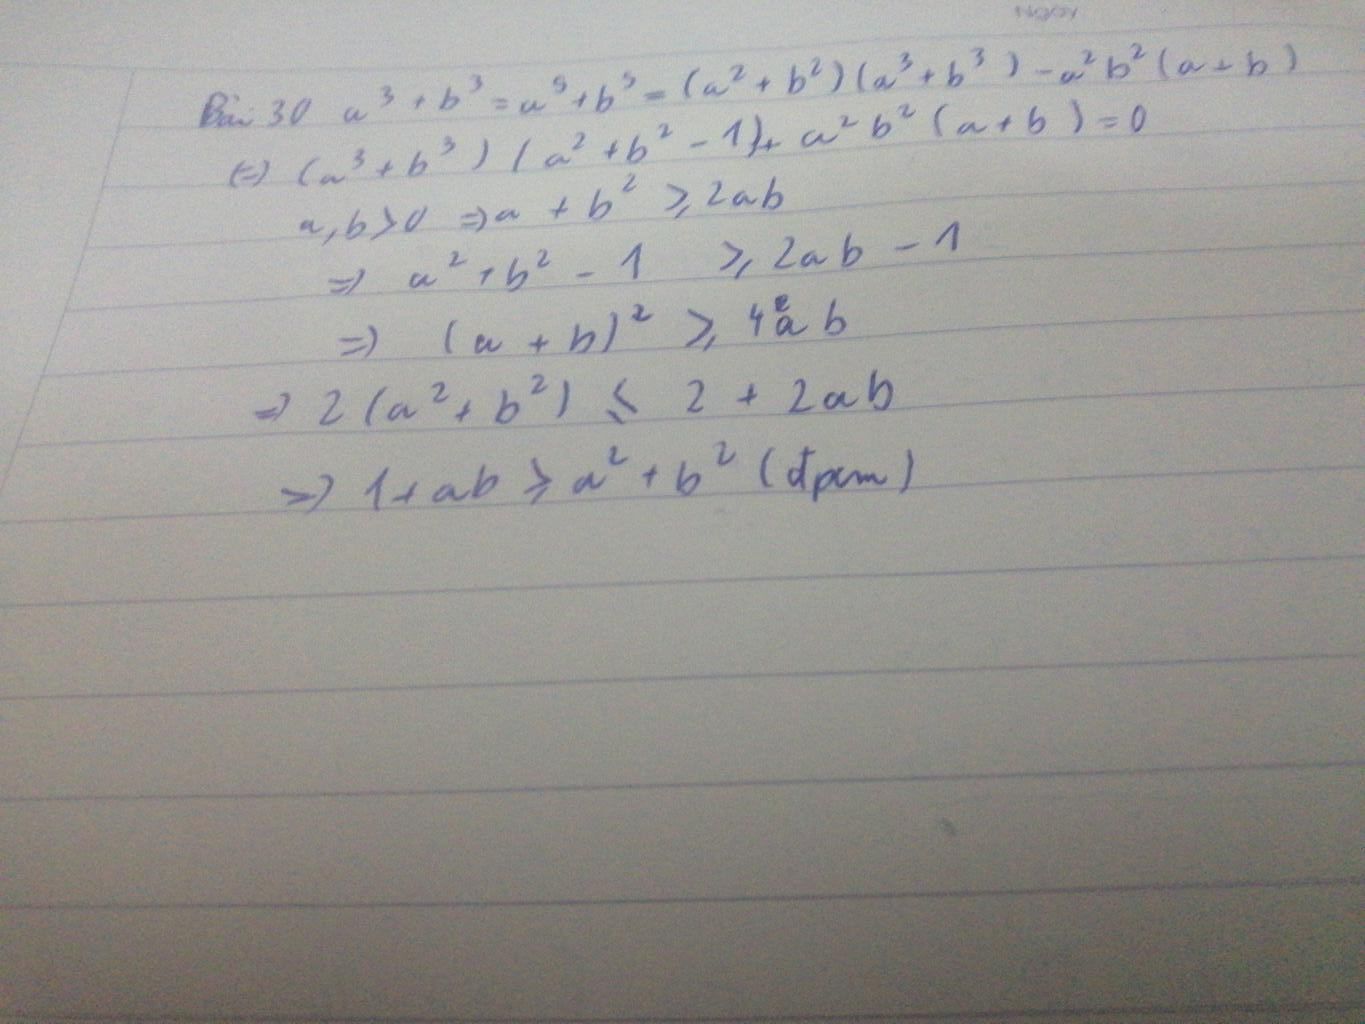 Ngày
Bài 30 a³ + b³ = a⁵ + b⁵ = (a² + b²)(a³ + b³) - a²b²(a + b)
(=) (a³ + b³)(a² + b² - 1) + a²b²(a + b) = 0
a, b > 0 => a + b² ≥ 2ab
=> a² + b² - 1 ≥ 2ab - 1
=> (a + b)² ≥ 4ab
=> 2(a² + b²) ≤ 2 + 2ab
=> 1 + ab ≥ a² + b² (đpcm)